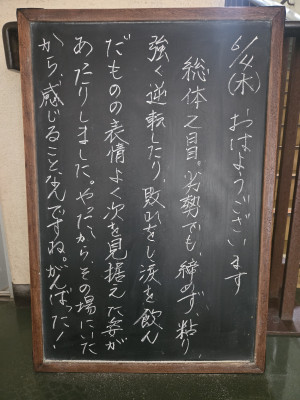 6/4(木) おはようございます
総体2日目。劣勢でも、締めず、粘り、
強く逆転したり、敗れをし涙を飲ん
だものの表情よく次を見据えた姿が
あたりしました。やったから、その場にいた
から、感じることなんですね。がんばった!